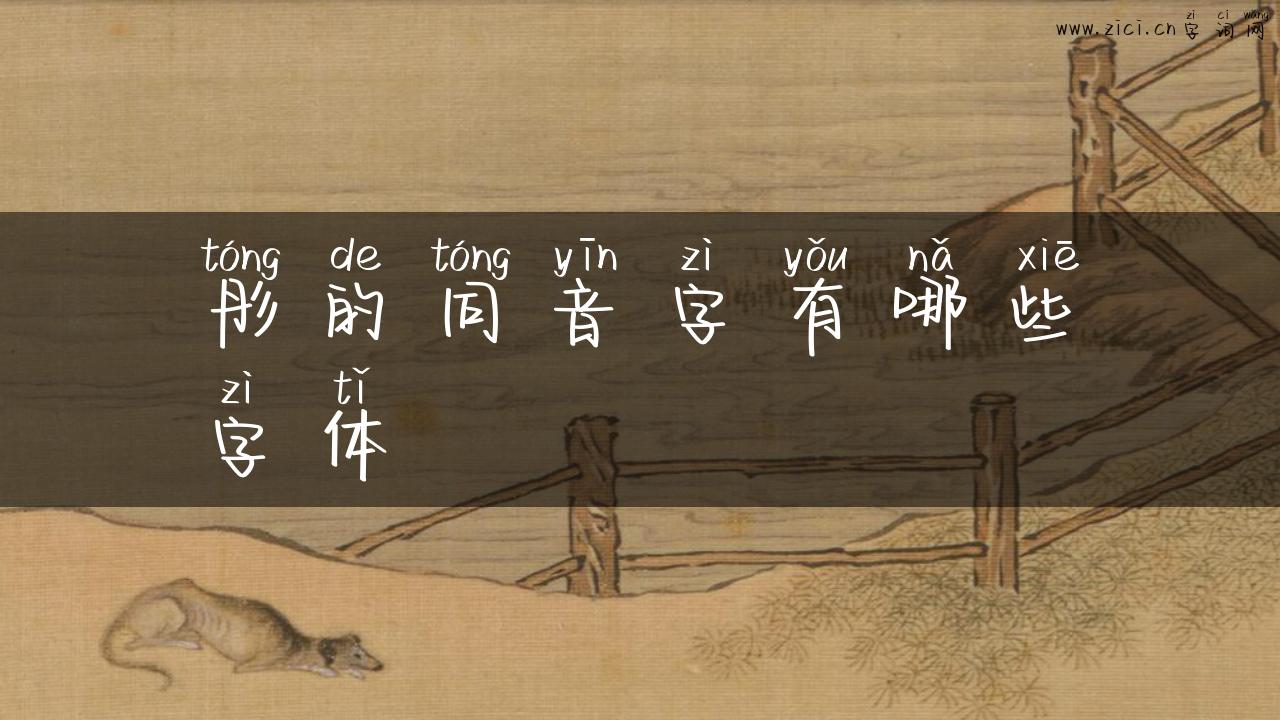 zì cì wǎng
www.zici.cn 字词网
tóng de tóng yīn zì yǒu nǎ xiē
彤的同音字有哪些
zì tǐ
字体